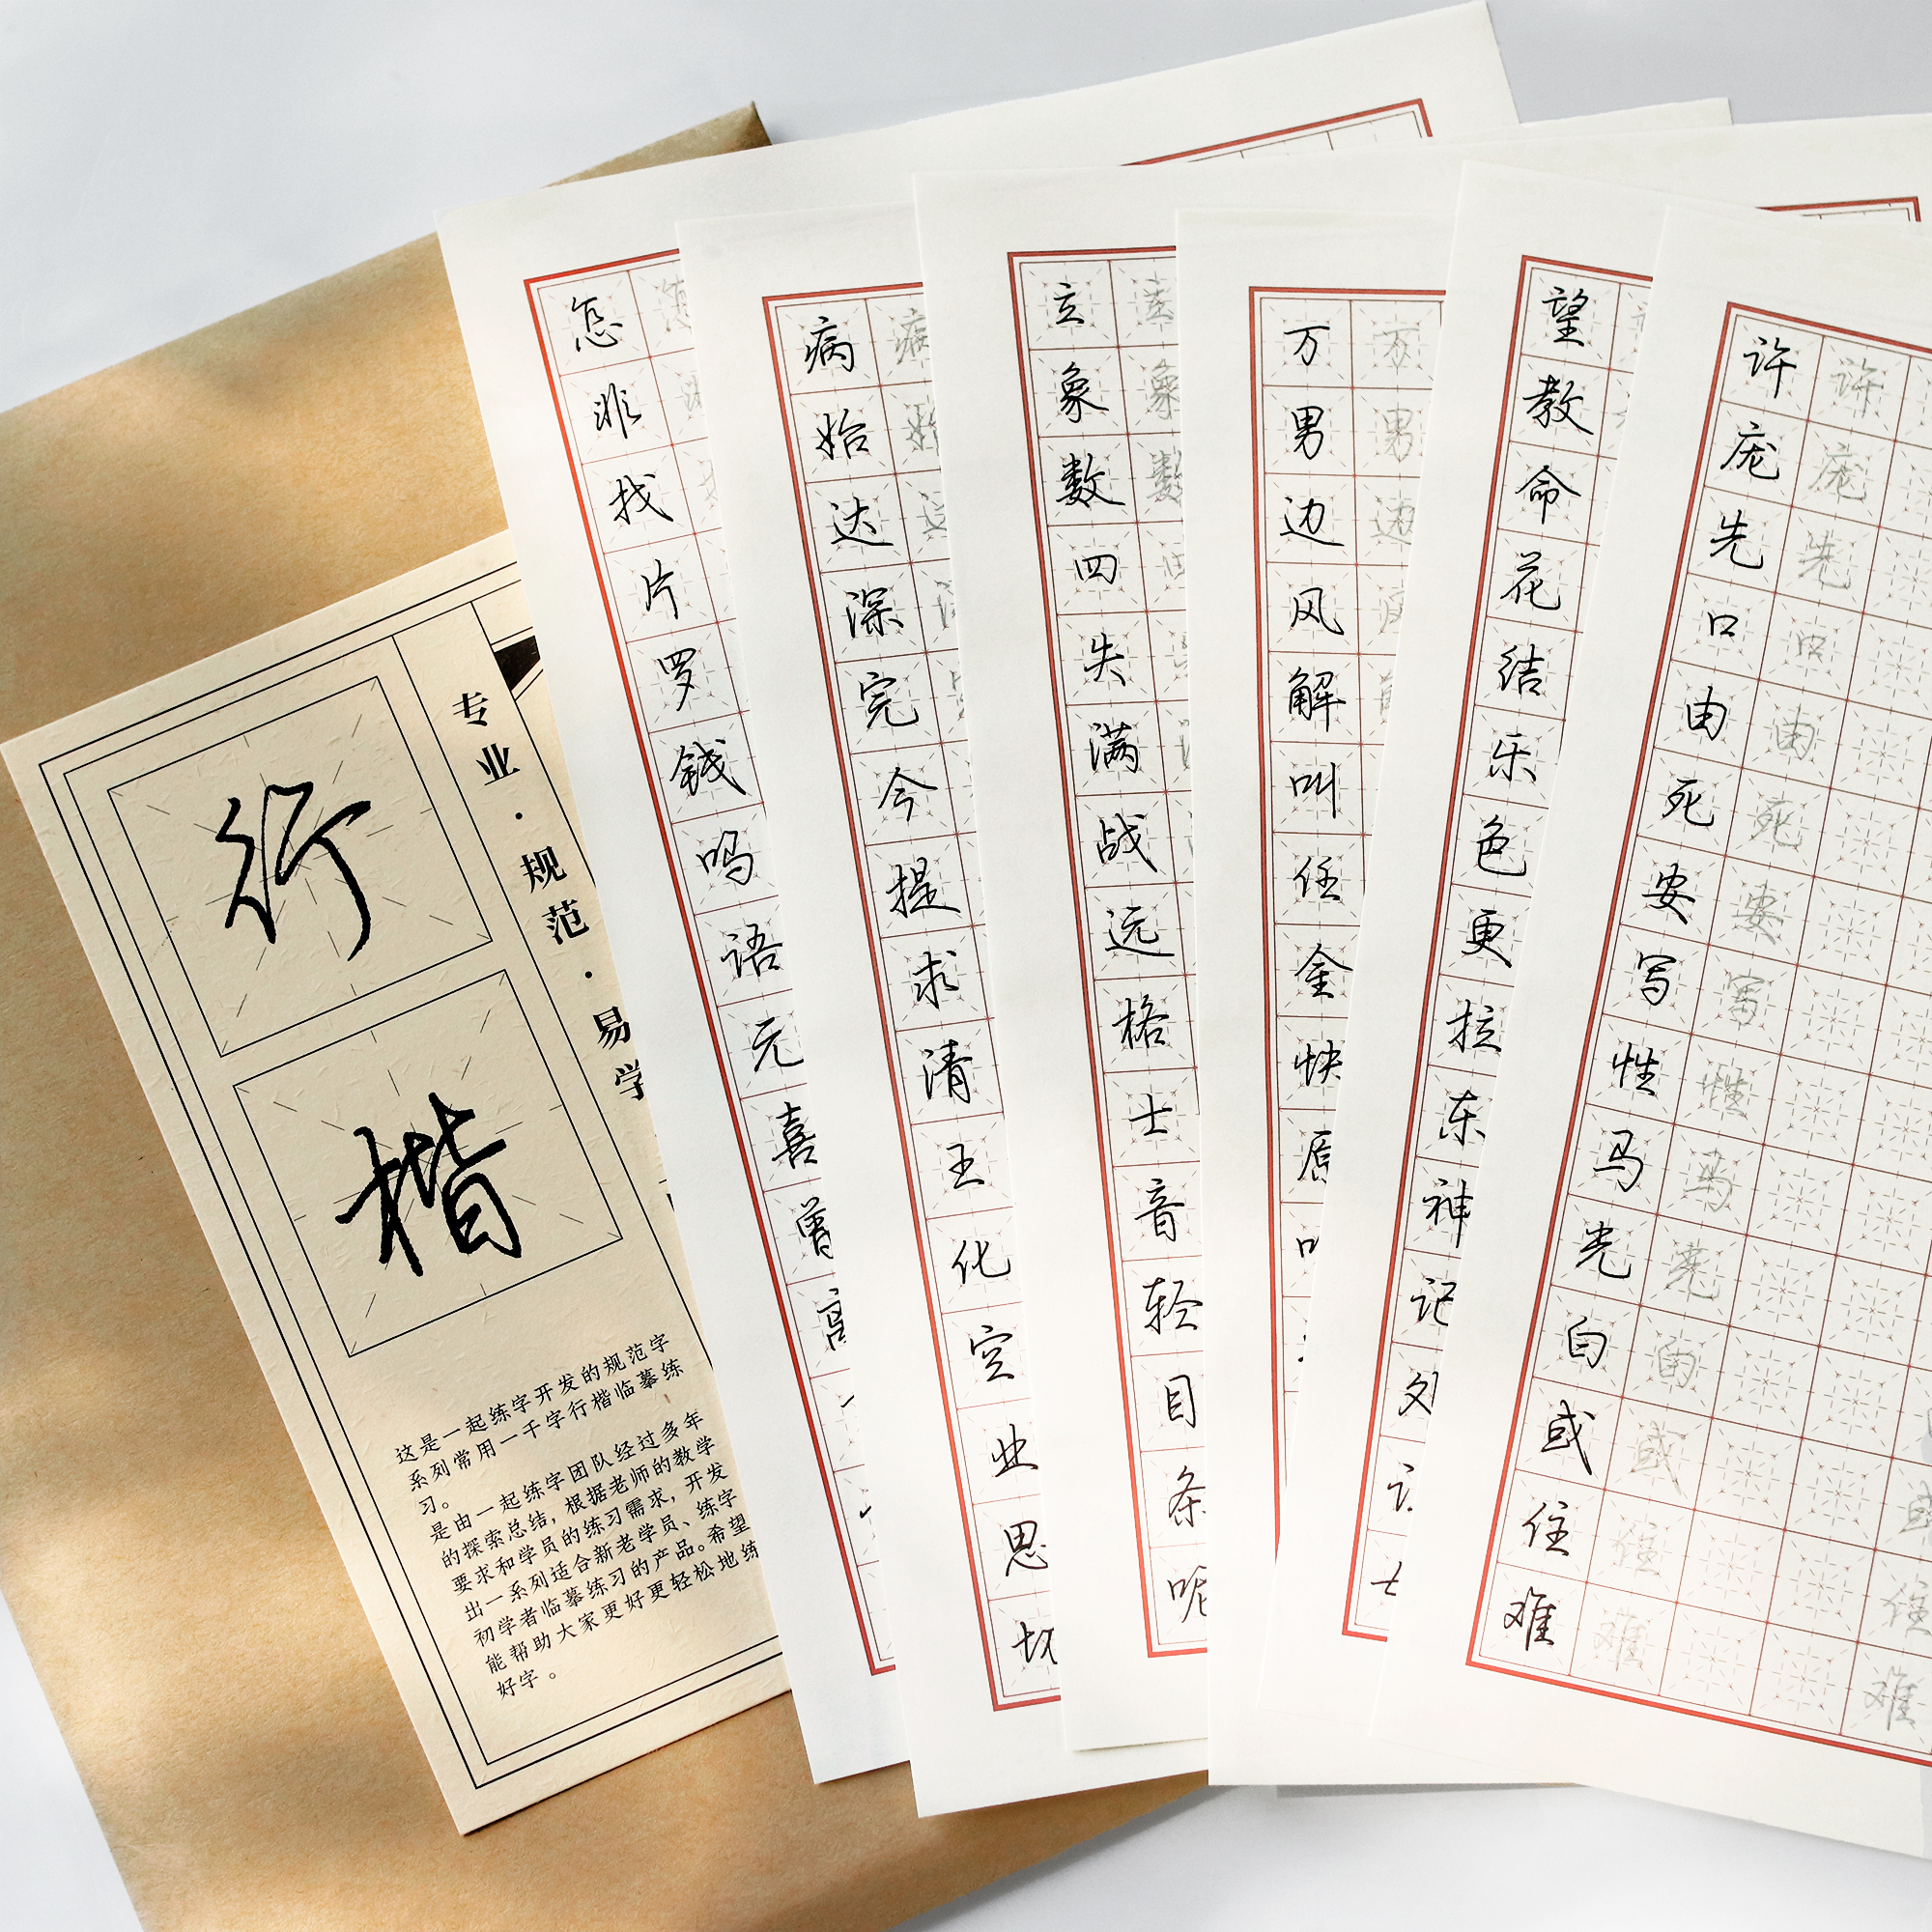 行
楷
专业·规范·易学
这是一起练字开发的规范字
系列常用一千字行楷临摹练
习。
是由一起练字团队经过多年
的探索总结，根据老师的教学
要求和学员的练习需求，开发
出一系列适合新老学员、练字
初学者临摹练习的产品。希望
能帮助大家更好更轻松地练
好字。
怎 怎
非 非
找
片
罗
钱
吗
语
元
喜
曾
高
病 病
始 始
达 达
深
完
今
提
求
清
王
化
空
业
思
切
立 立
象 象
数 数
四
失
满
战
远
格
士
音
轻
目
条
呢
万 万
男 男
边 边
风 风
解
叫
任
金
快
原
望
教
命
花
结
乐
色
更
拉
东
神
记
处
许 许
庞 庞
先 先
口 口
由 由
死 死
安 安
写 写
性 性
马 马
光 光
白 白
或 或 或
住 住 住
难 难 难